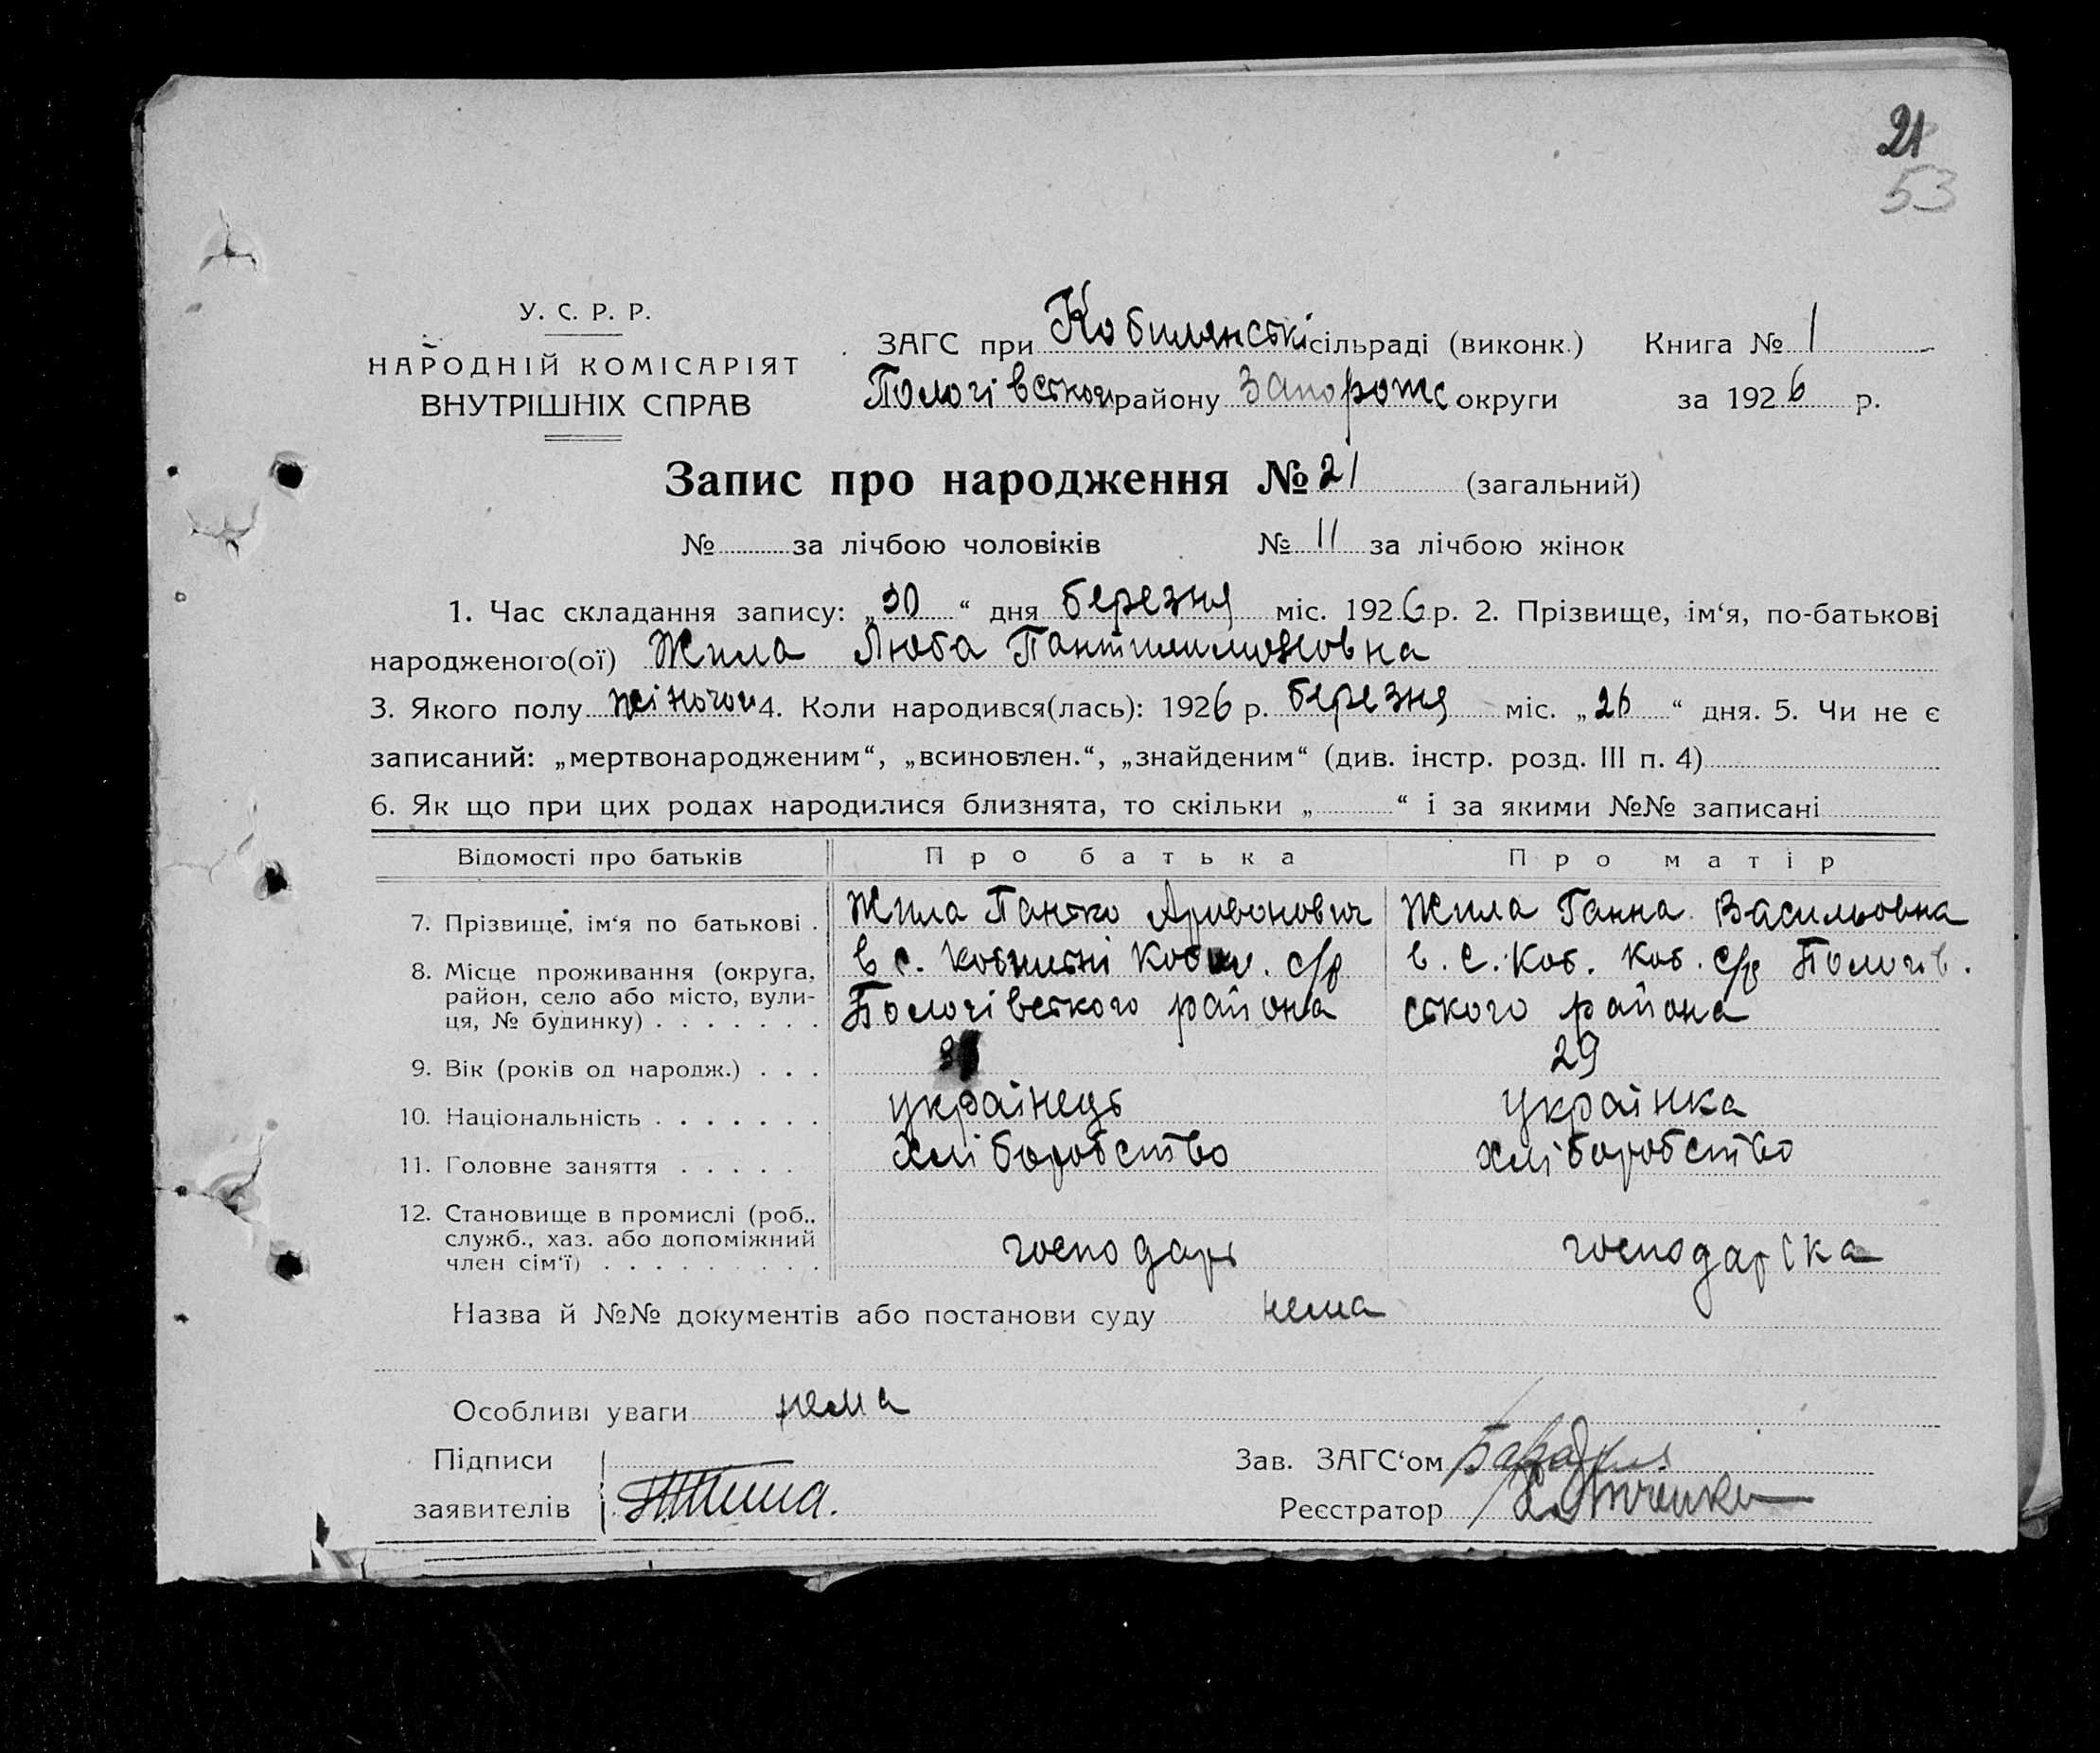 21
53
У. С. Р. Р.
НАРОДНІЙ КОМІСАРІЯТ
ВНУТРІШНІХ СПРАВ
ЗАГС при Кобилянсткі сільраді (виконк.) Книга № 1
Пологівсткого району Запорожс округи за 1926 р.
Запис про народження № 21 (загальний)
№ за лічбою чоловіків № 11 за лічбою жінок
1. Час складання запису: „30“ дня березня міс. 1926 р. 2. Прізвище, ім‘я, по-батькові
народженого(ої) Жила Люба Пантилимоновна
3. Якого полу жіночого 4. Коли народився(лась): 1926 р. березня міс. „26“ дня. 5. Чи не є
записаний: „мертвонародженим“, „всиновлен.“, „знайденим“ (див. інстр. розд. III п. 4)
6. Як що при цих родах народилися близнята, то скільки „ “ і за якими №№ записані
Відомості про батьків Про батька Про матір
7. Прізвище, ім‘я по батькові . Жила Жила Ганна Васильовна
8. Місце проживання (округа, в с. с/р в. с. Коб. Коб. с/р Пологів.
район, село або місто, вули-
ця, № будинку) . . . . . . . Пологівсткого района сткого района
9. Вік (років од народж.) . . . 29
10. Національність . . . . . . . українець українка
11. Головне заняття . . . . . хліборобство хліборобство
12. Становище в промислі (роб.,
служб., хаз. або допоміжний
член сім‘ї) . . . . . . . . . господарь господарка
Назва й №№ документів або постанови суду нема
Особливі уваги нема
Підписи Зав. ЗАГС‘ом
заявителів Реєстратор